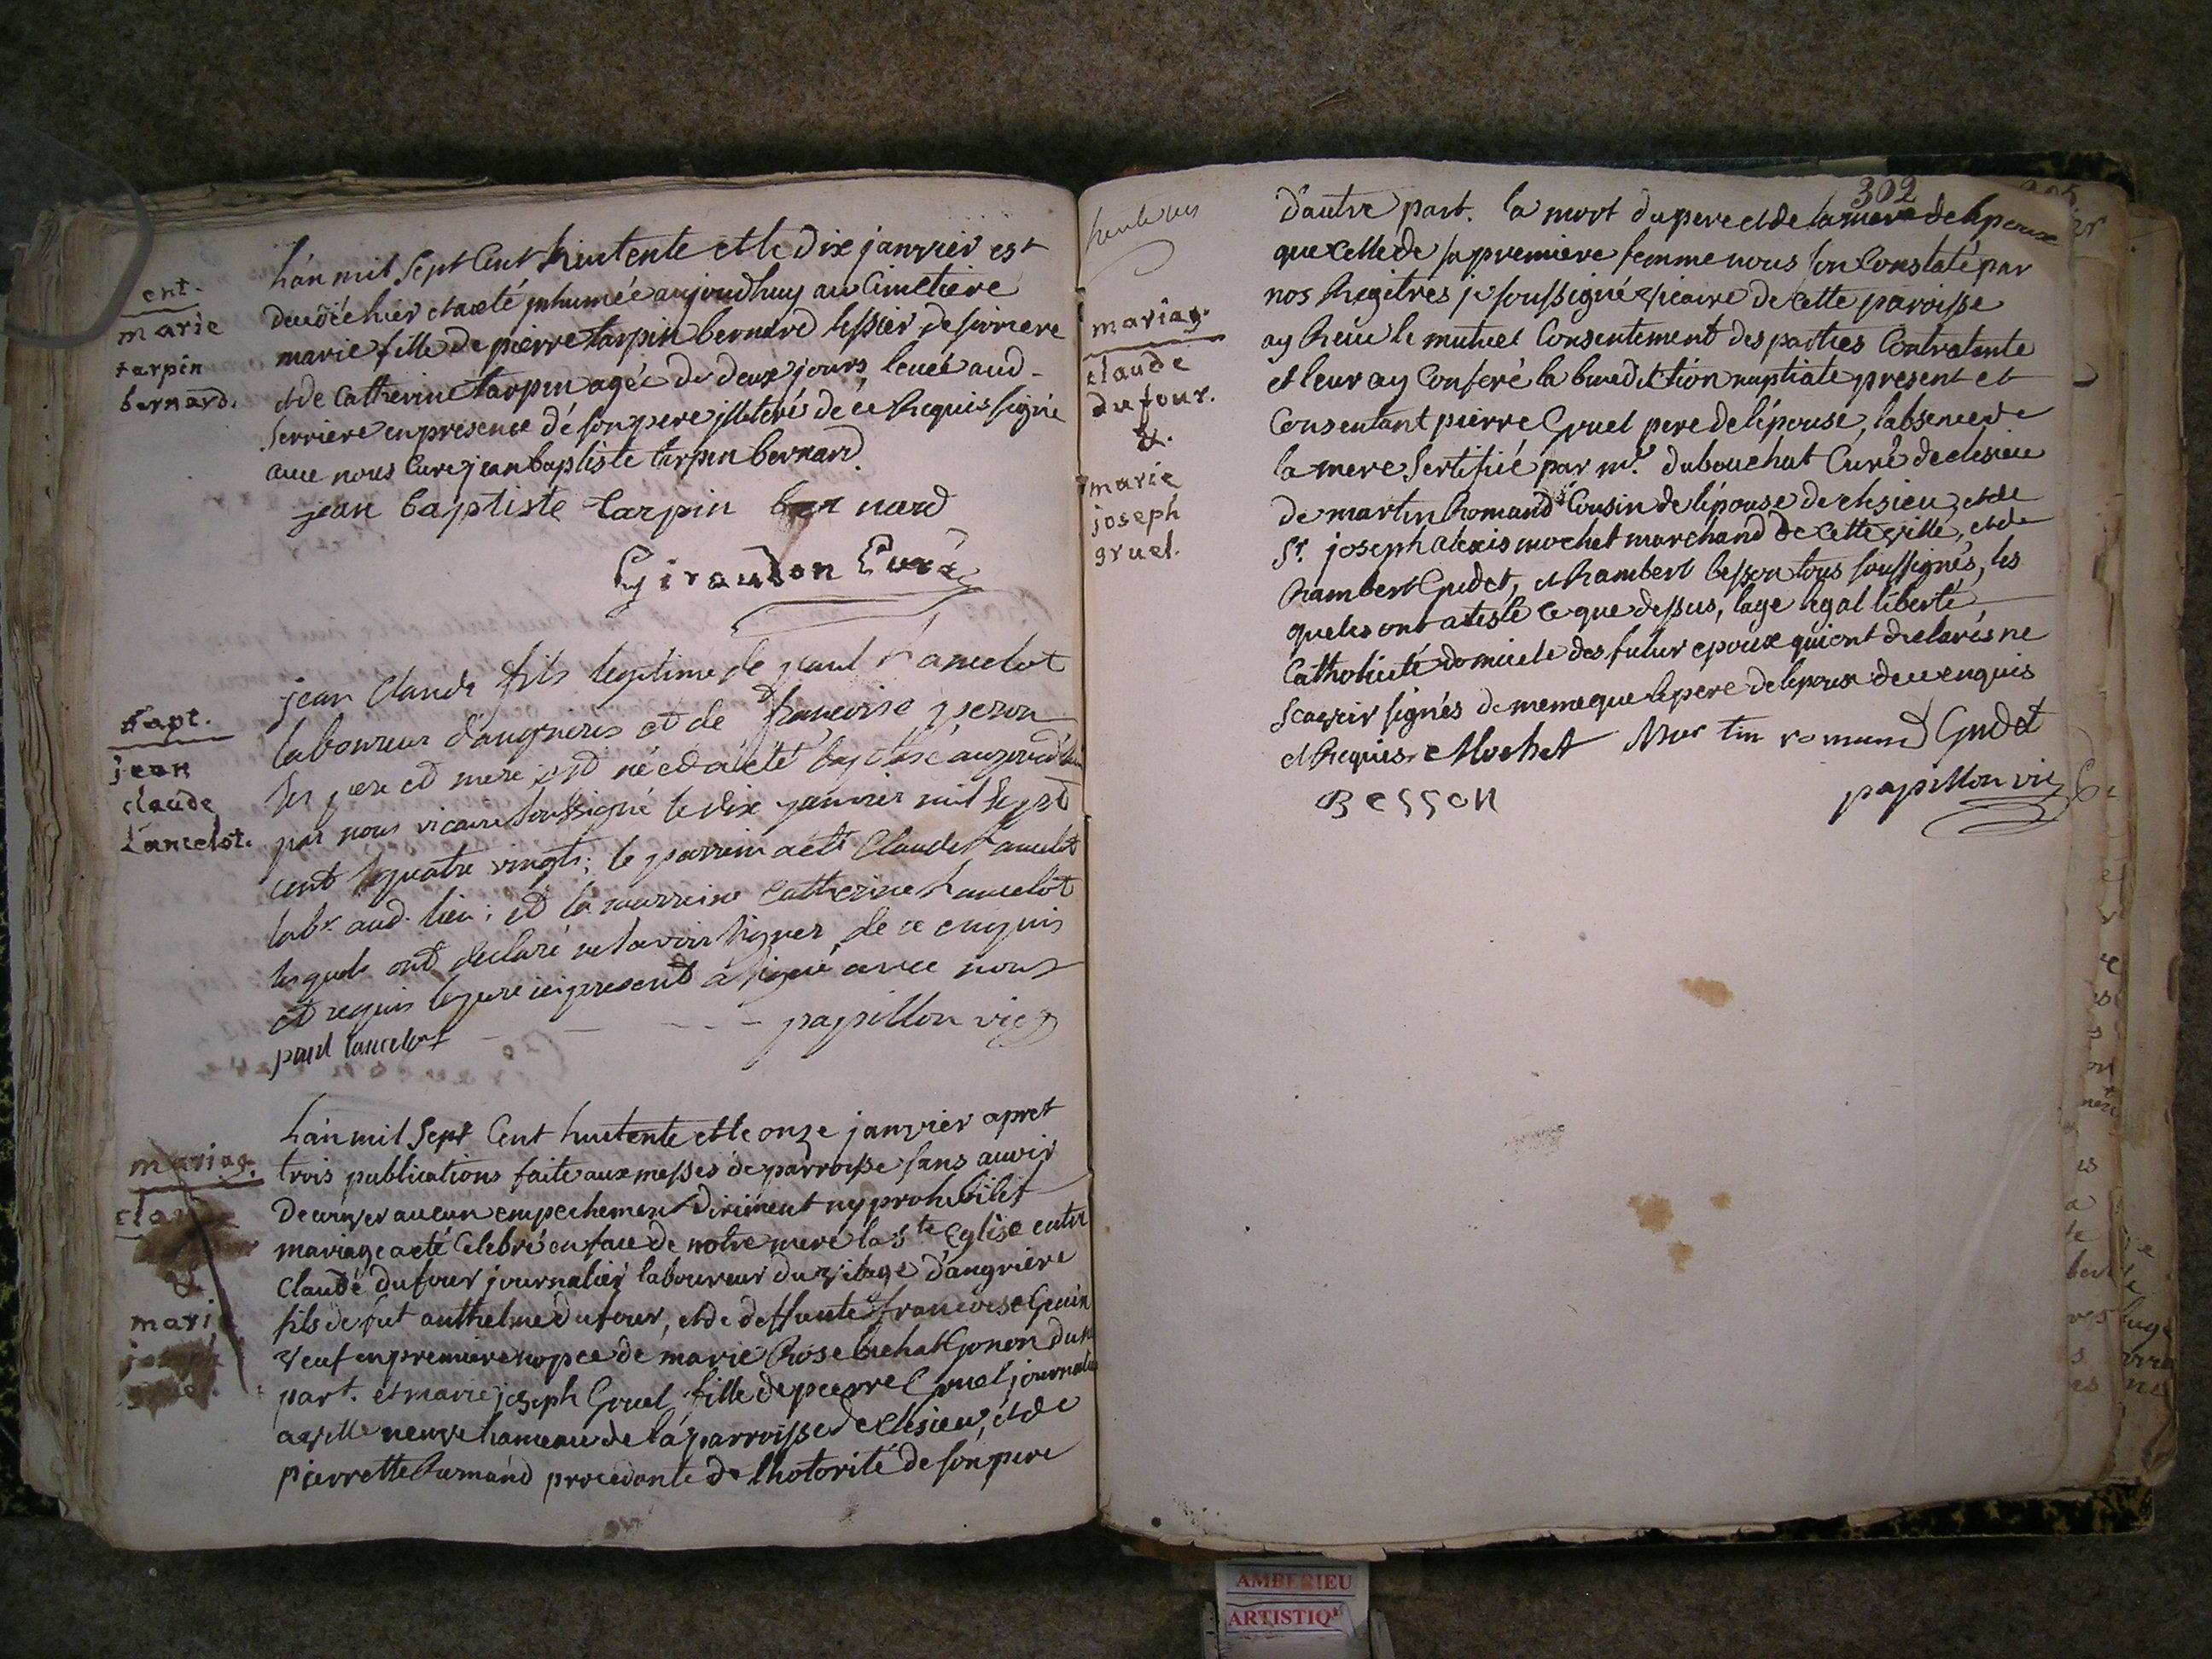 ent.
marie
tarpin
bernard.
L'an mil Sept Cent huitente et le dix janvier est
decedée hier et a eté inhumée aujourdhuy au Cimetiere
marie fille de pierre tarpin bernard tessier de serriere
et de Catherine tarpin agée de deux jours levée aud
Serriere en presence dé son pere illiteré de ce Requis signé
avec nous Curé jean baptiste tarpin bernard
jean baptiste tarpin ber nard
Giraudon Curé
bapt.
jean
claude
Lancelot.
jean Claude fils legitime de paul Lancelot
laboureur d'angrieres et de francoise peron
ses pere et mere est né et a été baptisé aujourdhui
par nous vicaire soussigné le dix janvier mil sept
cent quatre vingts; le parrein a été Claude Lancelot
labr. aud. lieu; et la marreine Catherine Lancelot
lesquels ont declaré ne savoir signer de ce enquis
et requis le pere ici present a signé avec nous
paul lancelot - - - - papillon vic
mariag.
claude
&
marie
joseph
gruel.
L'an mil Sept Cent huitente et le onze janvier apret
trois publications faite aux messes de parroisse sans avoir
Decouver aucun empechement dirimént ny prohibitif
mariage a eté Celebré en face de notre mere la Ste Eglise entre
Claude dufour journalier laboureur du vilage d'angriere
fils de fut anthelme dufour, et de deffunte francoise
veuf en premiere nopce de marie Rose gonon dune
part. et marie joseph Gruel fille de pierre Gruel journalier
a ville neuve hameau de la parroisse de clesieu, et de
pierrette Rumand procedante de lhotorité de son pere
302
mariag.
claude
dufour.
&.
marie
joseph
gruel.
d'autre part. la mort du pere et de la mere de lepoux
que celle de sa premiere femme nous son Constaté par
nos Regitres je soussigné vicaire de cette paroisse
ay Receu le mutuel Consentement des parties Contratante
et leur ay Conferé la benediction nuptiale present et
Consentant pierre Gruel pere de lépouse, labsence de
la mere Sertifié par mr. dubouchat Curé de clesieu
de martin Romand Cousin de lépouse de clesieu, et de
Sr. joseph alexis mochet marchand de cette ville, et de
Rambert Gudet, et Rambert besson tous soussignés, les
queles ont atesté ce que dessus, lage legal liberté
Catholicité domicile des futur epoux qui ont declarés ne
scavoir signés de meme que le pere de lepoux de ce enquis
et Requis. Mochet Mar tin romand Gudet
Besson papillon vic
AMBERIEU
ARTISTIQ